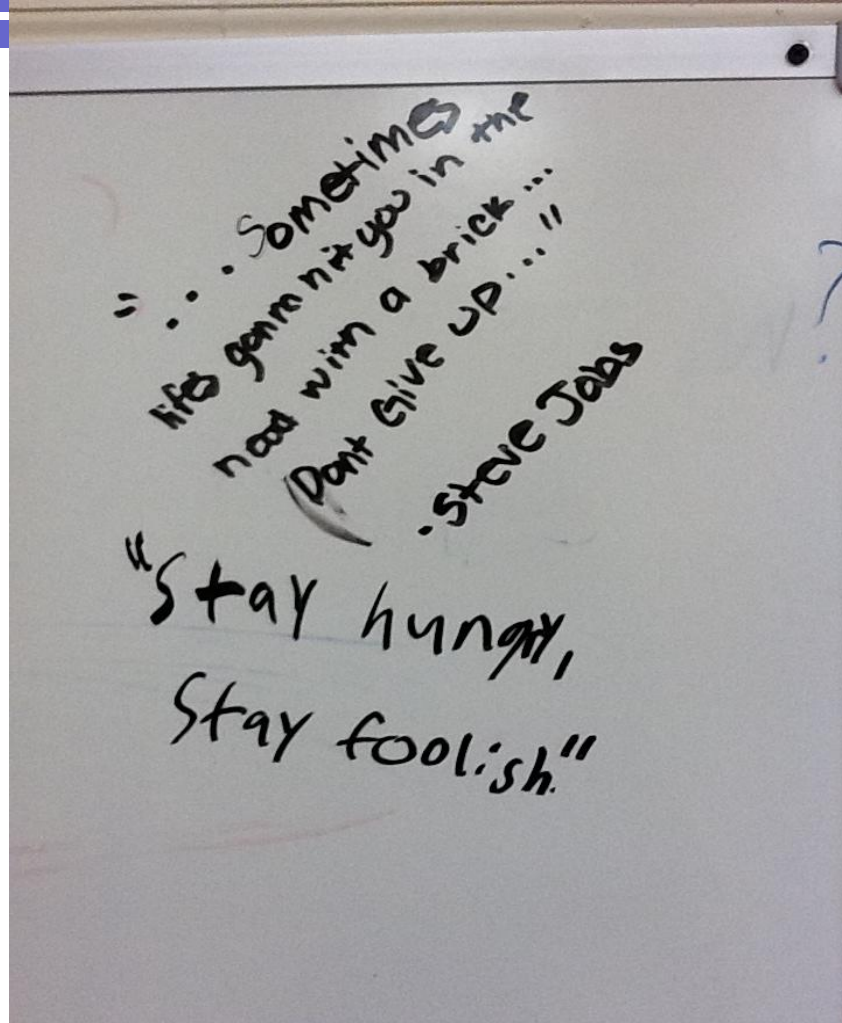 "...Sometimes
lifes gonna hit you in the
head with a brick...
Dont Give up..."
.Steve Jobs
"Stay hungry,
Stay foolish."
?